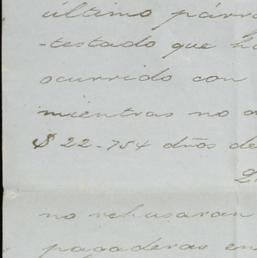 último párra
-testado que ha
ocurrido con
mientras no a
$ 22.754 dños de
2
no rehusaran
pagaderas en